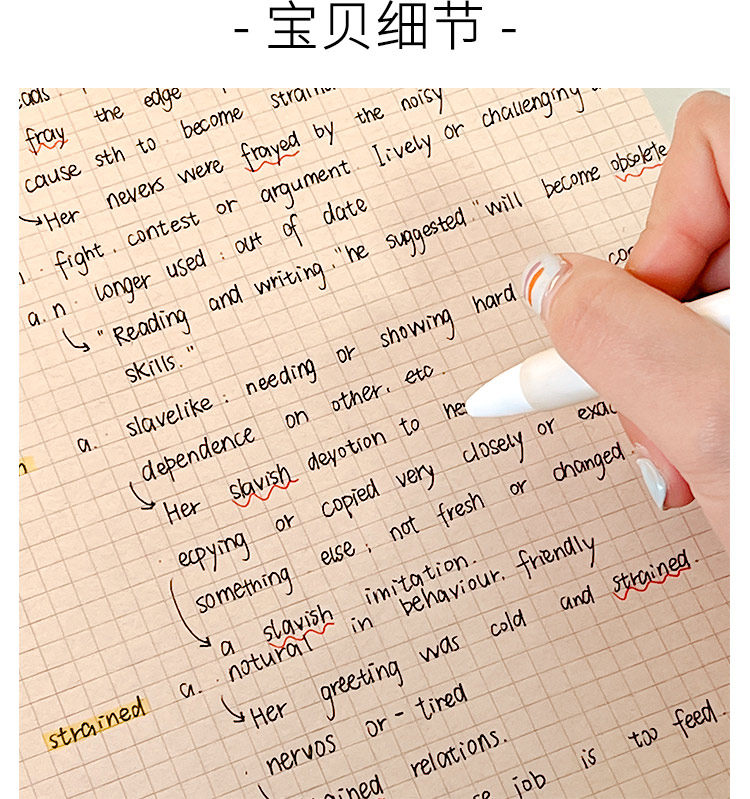 - 宝贝细节 -
fray the edge
cause sth to become
Her nevers were frayed by the noisy
fight. contest or argument. lively or challenging
a. n. longer used : out of date
"Reading and writing." he suggested "will become obsolete
skills."
a. slavelike : needing or showing hard
dependence on other. etc.
Her slavish devotion to
ecpying or copied very closely or
something else ; not fresh or changed.
a slavish imitation.
strained a. notural in behaviour. friendly
Her greeting was cold and strained.
nervos or - tired
relations.
job is too feed.